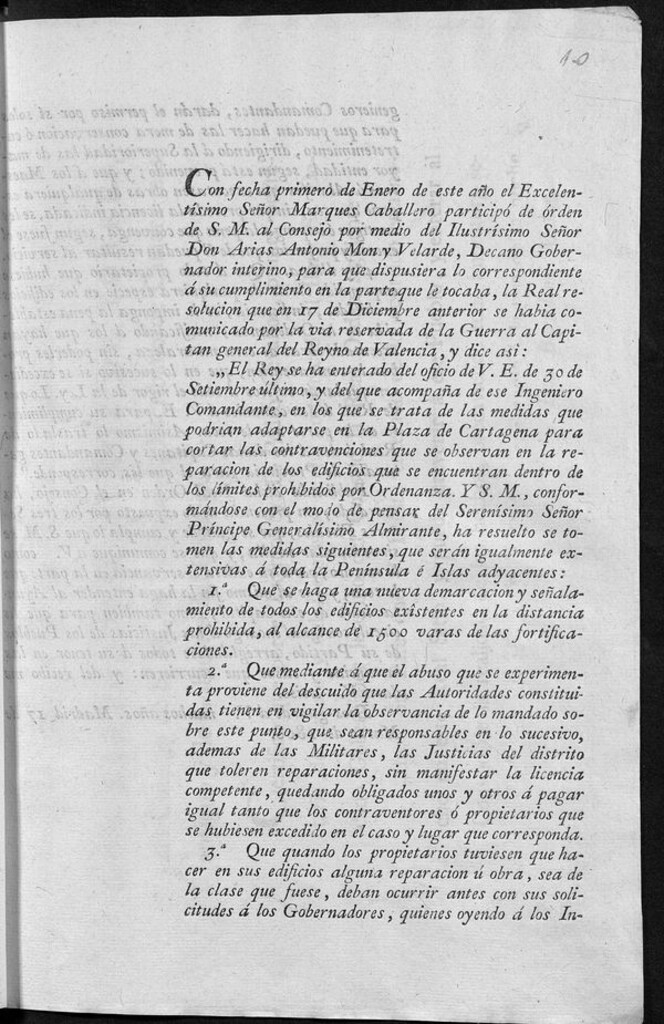 10
Con fecha primero de Enero de este año el Excelen-
tísimo Señor Marques Caballero participó de órden
de S. M. al Consejo por medio del Ilustrísimo Señor
Don Arias Antonio Mon y Velarde, Decano Gober-
nador interino, para que dispusiera lo correspondiente
á su cumplimiento en la parte que le tocaba, la Real re-
solucion que en 17 de Diciembre anterior se habia co-
municado por la via reservada de la Guerra al Capi-
tan general del Reyno de Valencia, y dice asi:
„El Rey se ha enterado del oficio de V. E. de 30 de
Setiembre último, y del que acompaña de ese Ingeniero
Comandante, en los que se trata de las medidas que
podrian adaptarse en la Plaza de Cartagena para
cortar las contravenciones que se observan en la re-
paracion de los edificios que se encuentran dentro de
los límites prohibidos por Ordenanza. Y S. M., confor-
mándose con el modo de pensar del Serenísimo Señor
Príncipe Generalísimo Almirante, ha resuelto se to-
men las medidas siguientes, que serán igualmente ex-
tensivas á toda la Península é Islas adyacentes:
1.ª Que se haga una nueva demarcacion y señala-
miento de todos los edificios existentes en la distancia
prohibida, al alcance de 1500 varas de las fortifica-
ciones.
2.ª Que mediante á que el abuso que se experimen-
ta proviene del descuido que las Autoridades constitui-
das tienen en vigilar la observancia de lo mandado so-
bre este punto, que sean responsables en lo sucesivo,
ademas de las Militares, las Justicias del distrito
que toleren reparaciones, sin manifestar la licencia
competente, quedando obligados unos y otros á pagar
igual tanto que los contraventores ó propietarios que
se hubiesen excedido en el caso y lugar que corresponda.
3.ª Que quando los propietarios tuviesen que ha-
cer en sus edificios alguna reparacion ú obra, sea de
la clase que fuese, deban ocurrir antes con sus soli-
citudes á los Gobernadores, quienes oyendo á los In-